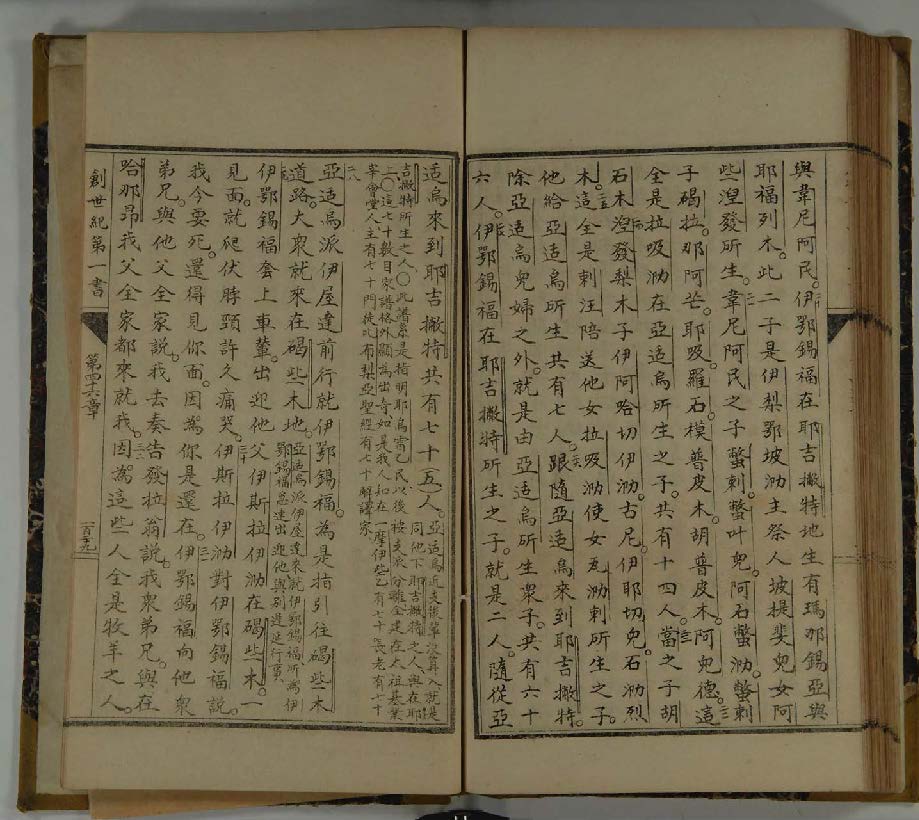 與韋尼阿民。伊鄂錫福在耶吉撇特地生有瑪那錫亞與
耶福列木。此二子是伊梨鄂坡泐主祭人坡提斐兒女阿
些湼發所生。韋尼阿民之子螌剌。螌叶兒。阿石螌泐。螌剌
子碣拉。那阿芒。耶吸。羅石。模普皮木。胡普皮木。阿兒德。這
全是拉吸泐在亞适烏所生之子。共有十四人。當之子胡
石木湼發梨木子伊阿哈切伊泐。古尼。伊耶切兒。石泐烈
木。這全是剌汪陪送他女拉吸泐使女瓦泐剌所生之子。
他給亞适烏所生共有七人。跟隨亞适烏來到耶吉撇特。
除亞适烏兒婦之外。就是由亞适烏所生衆子。共有六十
六人。伊鄂錫福在耶吉撇特所生之子。就是二人。隨從亞
适烏來到耶吉撇特共有七十五人。
亞适烏派伊屋達前行就伊鄂錫福。為是指引往碣些木
道路。大衆就來在碣些木地。
伊鄂錫福套上車輦。出迎他父伊斯拉伊泐在碣些木。一
見面。就爬伏脖頸許久痛哭。伊斯拉伊泐對伊鄂錫福說。
我今要死。還得見你面。因為你是還在。伊鄂錫福向他衆
弟兄。與他父全家說。我去奏告發拉翁說。我衆弟兄。與在
哈那昂我父全家都來就我。因為這些人全是牧羊之人。
創世紀第一書
第四十六章